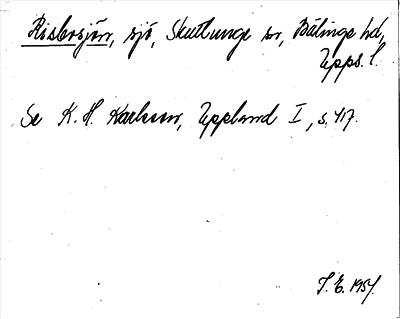 Risbysjön, sjö, Skuttunge sn, Bälinge hd,
Upps. l.
Se K. H. Karlsson, Uppland I, s. 417.
S. E. 1954.